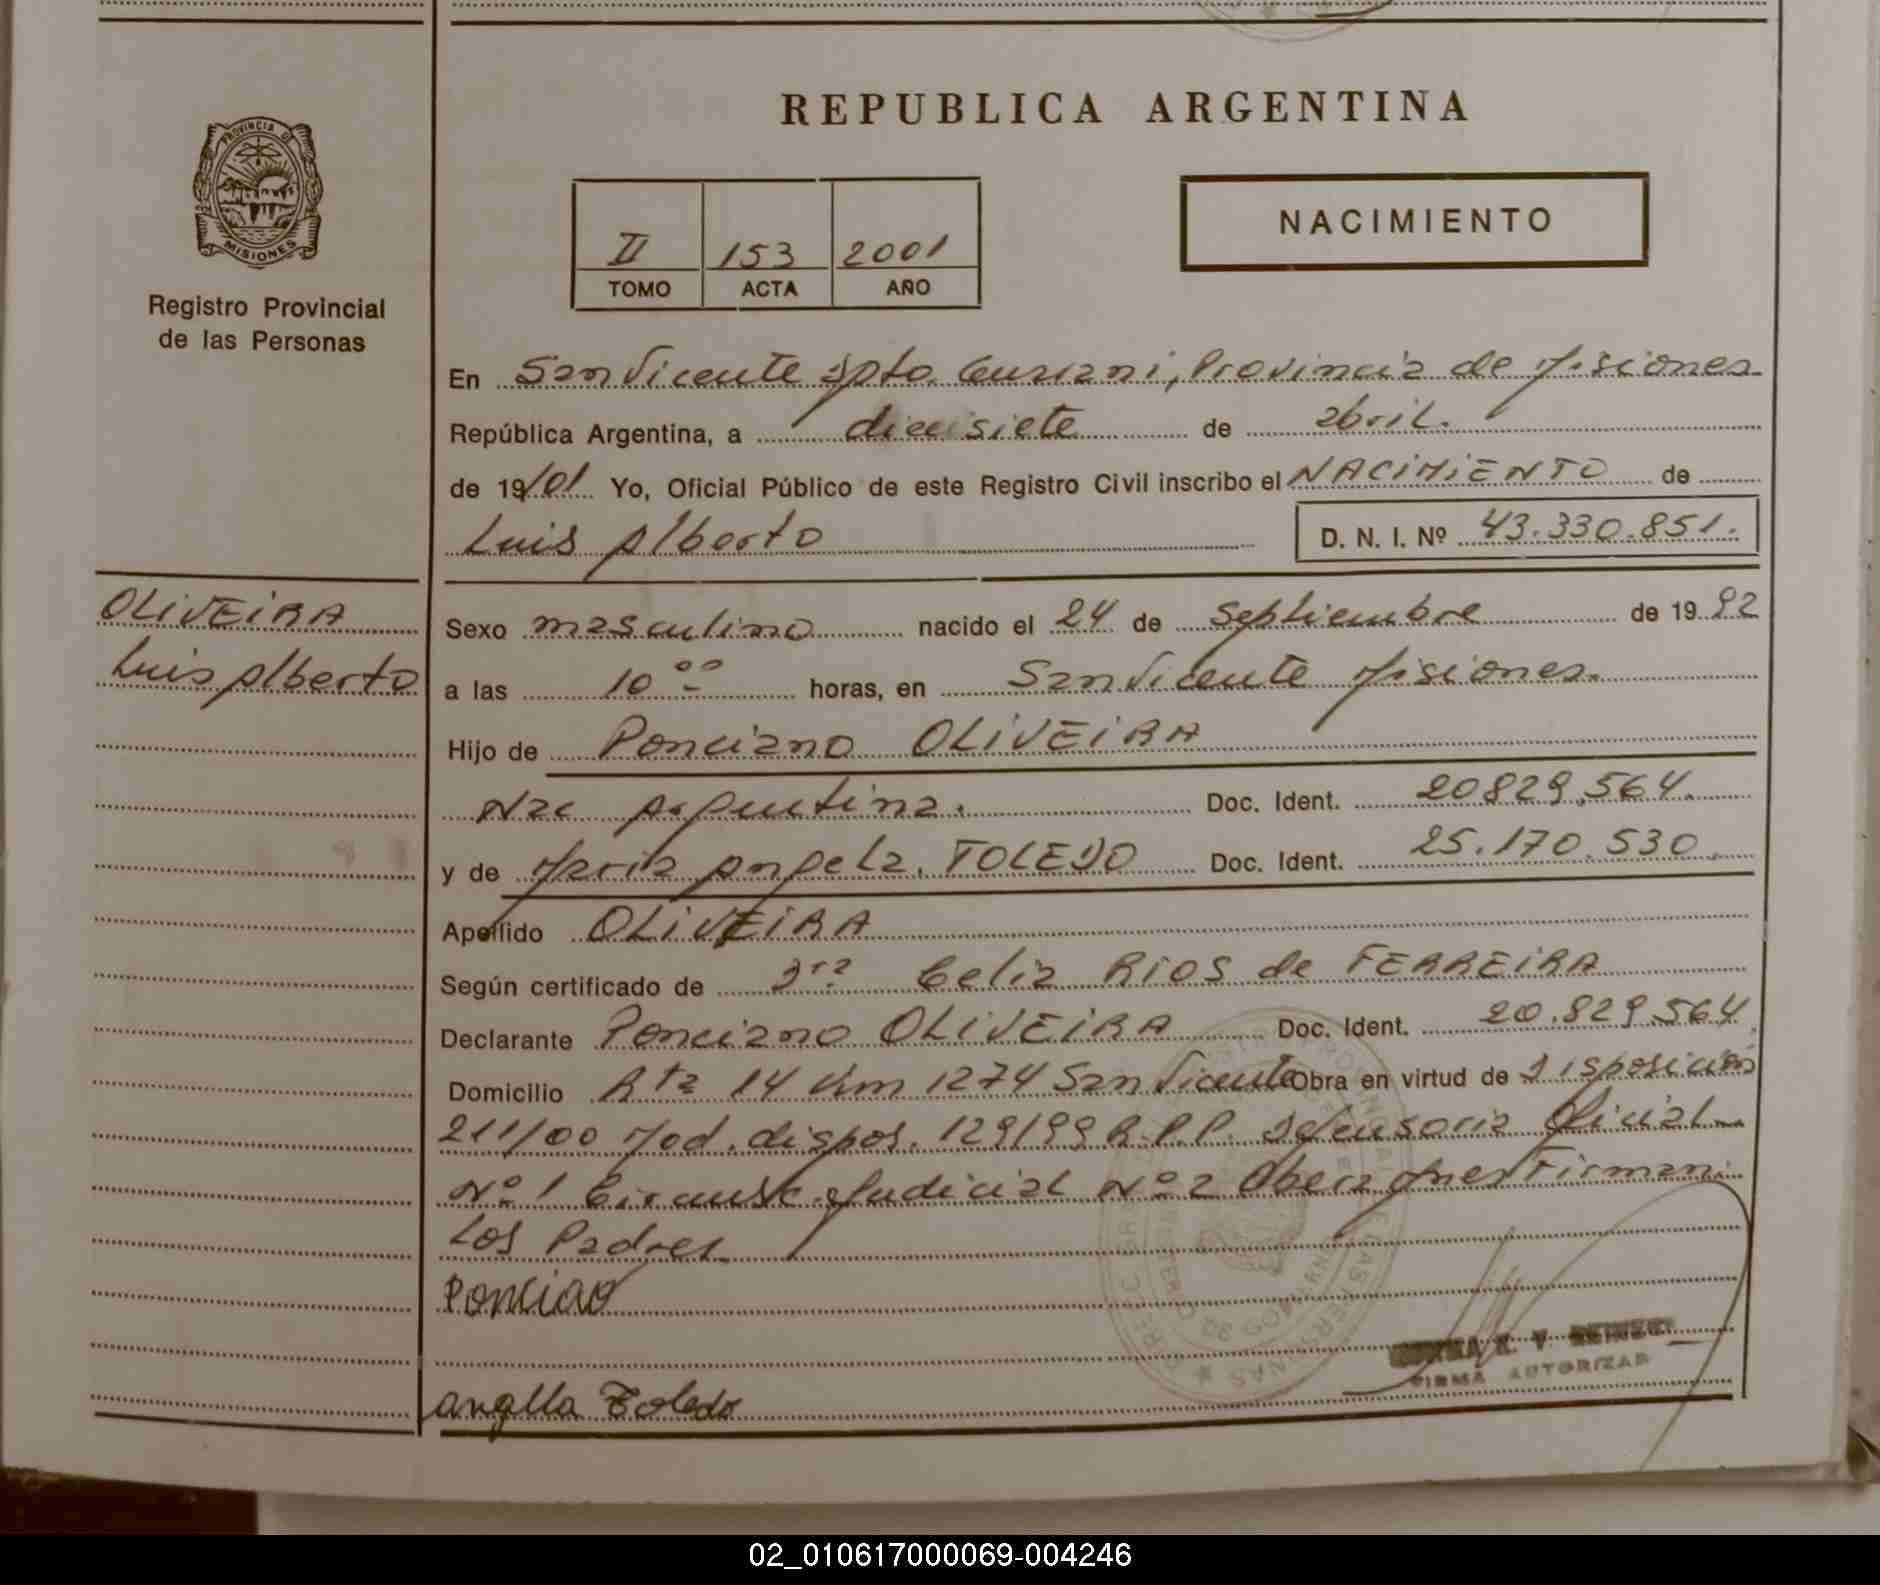 REPUBLICA ARGENTINA
PROVINCIA DE
MISIONES
Registro Provincial
de las Personas
II 153 2001
TOMO ACTA AÑO
NACIMIENTO
En San Vicente Dpto. Guarani, Provincia de Misiones
República Argentina, a diecisiete de abril.
de 19/01 Yo, Oficial Público de este Registro Civil inscribo el NACIMIENTO de
Luis Alberto D. N. I. Nº 43.330.851.
OLIVEIRA
Luis Alberto
Sexo masculino nacido el 24 de Septiembre de 19 92
a las 10 00 horas, en San Vicente Misiones.
Hijo de Ponciano OLIVEIRA
Nac Argentina. Doc. Ident. 20829.564.
y de Maria Angela. TOLEDO Doc. Ident. 25.170.530
Apellido OLIVEIRA
Según certificado de Dra Celia RIOS de FERREIRA
Declarante Ponciano OLIVEIRA Doc. Ident. 20.829.564
Domicilio Rta 14 Km 1274 San Vicente Obra en virtud de Disposición
211/00 Mod. dispos. 129/99 R.P.P. Defensoria Oficial
Nº 1 Circunsc. Judicial Nº 2 Obera Mnes Firman:
Los Padres
Ponciao
anglla Toledo
FIRMA AUTORIZAD
02_010617000069-004246